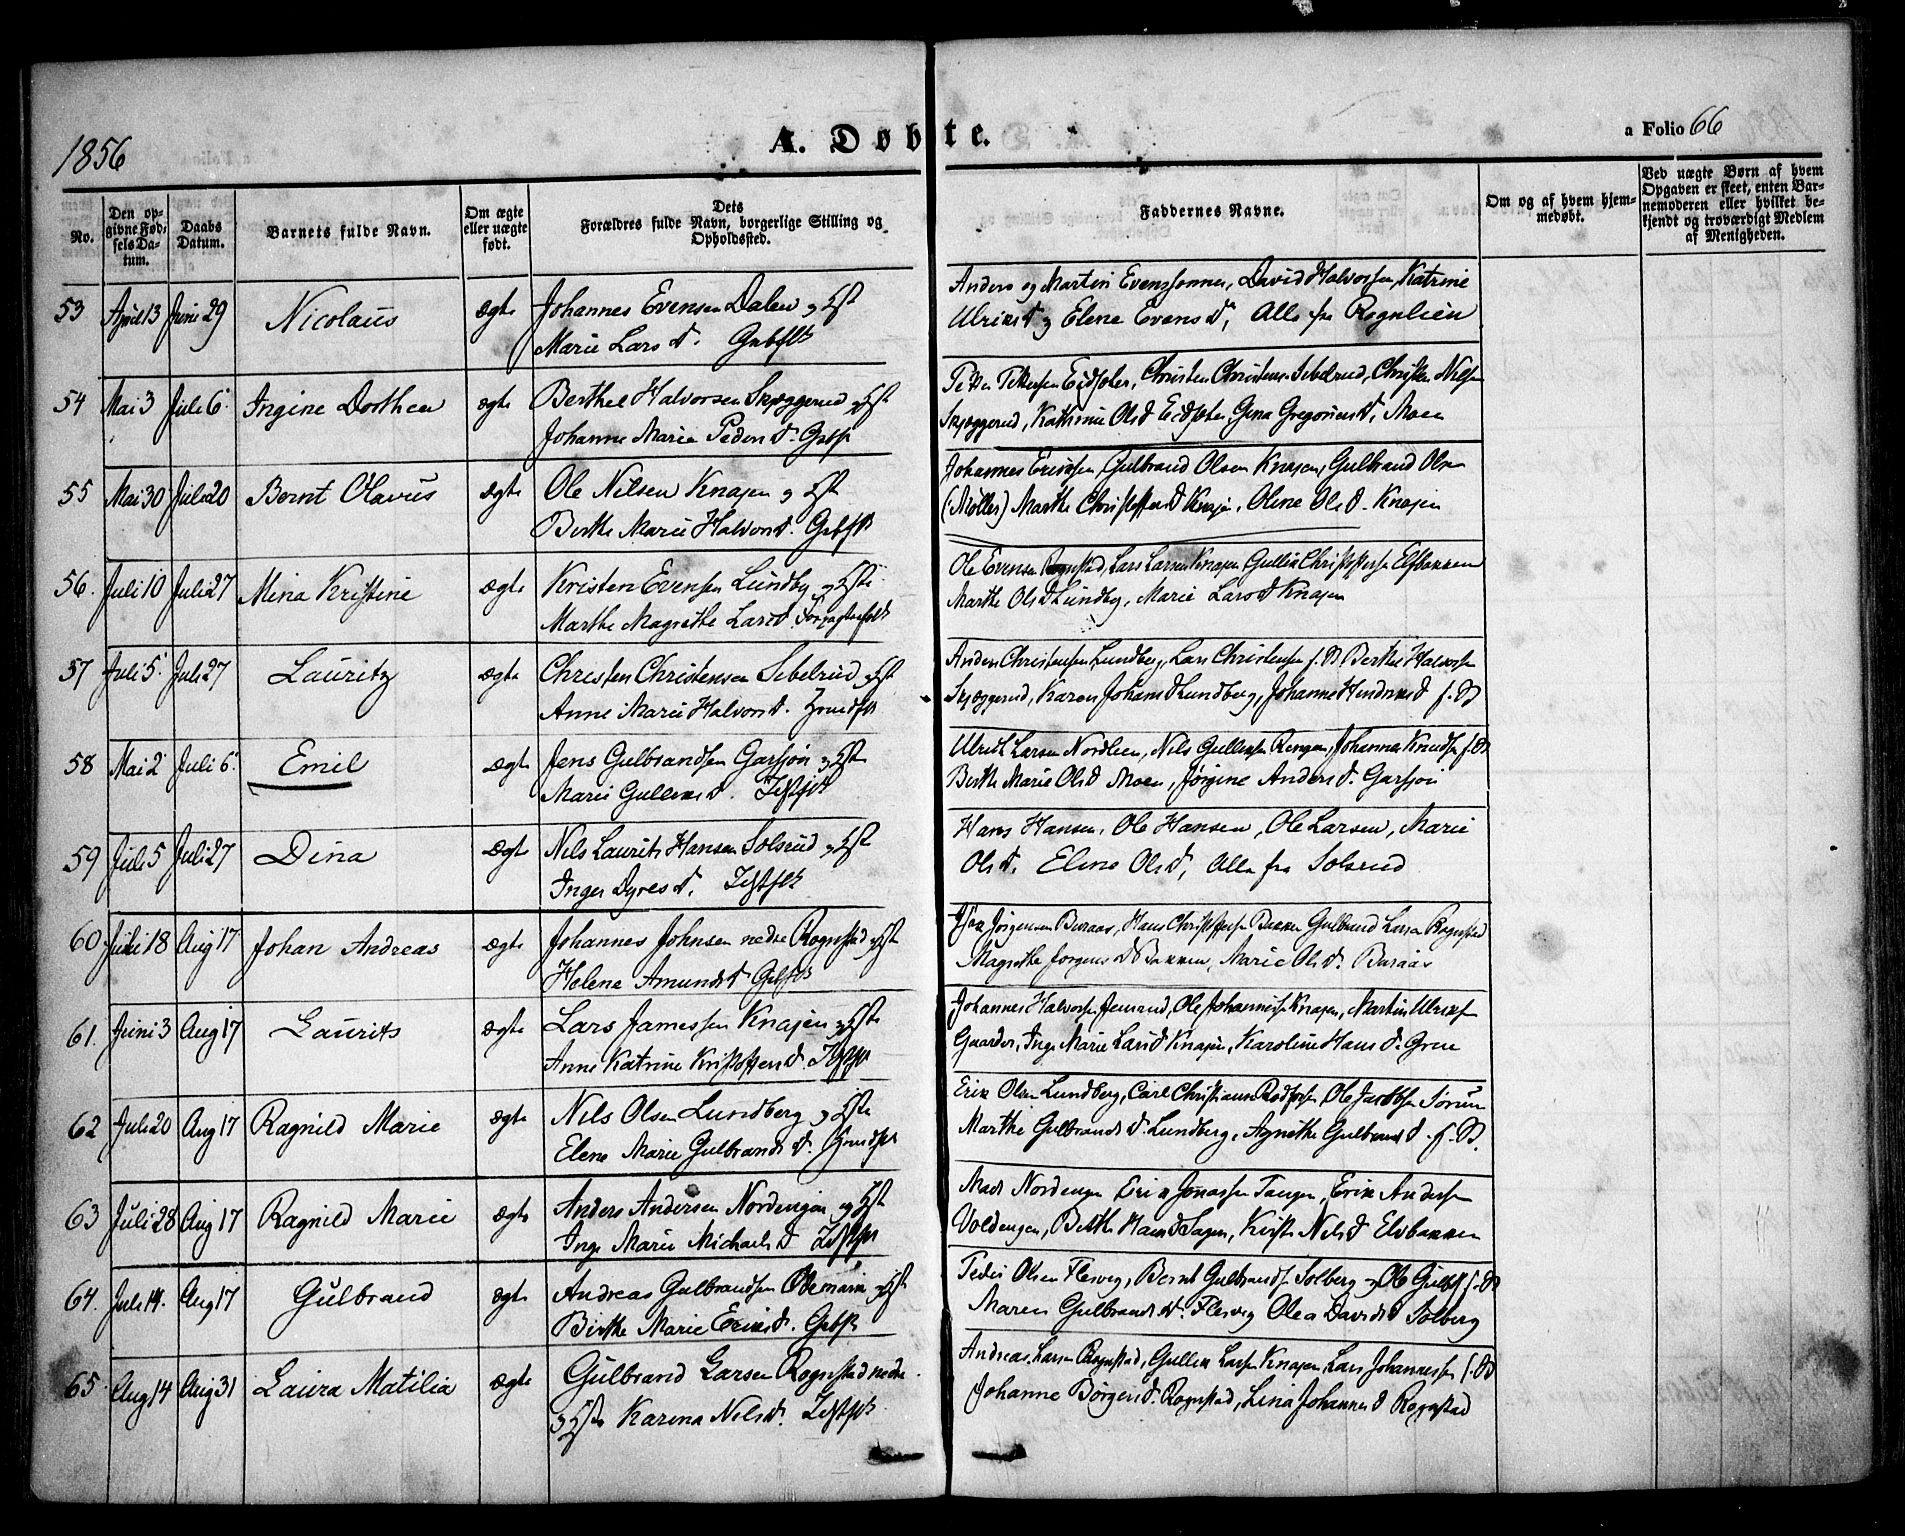 1856
A. Døbte.
a Folio 66
No.
Den op-
givne Fød-
sels Da-
tum.
Daabs
Datum.
Barnets fulde Navn.
Om ægte
eller uægte
født.
Dets
Forældres fulde Navn, borgerlige Stilling og
Opholdssted.
Faddernes Navne.
Om og af hvem hjem-
medøbt.
Ved uægte Børn af hvem
Opgaven er skeet, enten Bar-
nemoderen eller hvilket be-
kjendt og troværdigt Medlem
af Menigheden.
53 April 13 Juni 29 Nicolaus ægte Johannes Evensen Dalen og Hst
Marie Lars D. Gbfk
Anders og Martin Evenssønner, David Halvorsen, Katrine
Ulriks D og Elene Evens D, Alle fra Rognlien
54 Mai 3 Juli 6 Ingine Dorthea ægte Berthel Halvorsen Skjæggerud og Hst
Johanne Marie Peders D. Gbfk
Petter Pettersen Eidsfoter, Christen Christens. Sebelrud, Christen Nilsen
Skjæggerud, Kathrine Ols D Eidsfoter, Gina Gregorius D, Moen
55 Mai 30 Juli 20 Bernt Olavus ægte Ole Nilsen Knajen og Hst
Berthe Marie Halvors D. Gbfk
Johannes Eriksen, Gulbrand Olsen Knajen, Gulbrand Olsen
(Møller) Marthe Christoffers D Knajen, Oline Ols D. Knajen
56. Juli 10 Juli 27 Mina Kristine ægte Kristen Evensen Lundby og Hste
Marthe Magrethe Lars D. Forpagterfolk
Ole Evensen Rognstad, Lars Larsen Knajen Gullik Christoffersen Elfbakken
Marthe Ols D Lundby, Marie Lars D Knajen
57 Juli 5. Juli 27 Lauritz ægte Christen Christensen Sebelrud og Hst
Anne Marie Halvors D. Grundfk
Anders Christensen Lundberg, Lars Christensen f. St Berthel Halvorsen
Skjæggerud, Karen Johans D Lundberg, Johanne Hendriks D f. St
58 Mai 2 Juli 6. Emil ægte Jens Gulbrandsen Garsjøn og Hste
Marie Gulleks D. Jstfk
Ulrich Larsen Nordlien, Nils Gulliksen Rengen, Johannes Knudsen f. St
Berthe Marie Ols D Moen, Jørgine Anders D. Garsjøn
59 Juli 5 Juli 27 Dina ægte Nils Laurits Hansen Solsrud og Hst
Inger Dyres D. Jstfk
Hans Hansen, Ole Hansen, Ole Larsen, Marie
Ols D. Elene Ols D, Alle fra Solsrud
60 Juli 18 Aug 17 Johan Andreas ægte Johannes Johnsen nedre Rognstad og Hst
Helene Amunds D Gbfk
Isak Jørgensen Buraas, Hans Christoffersen Bakken Gulbrand Larsen Rognstad
Magrethe Jørgens D Bakken, Marie Ols D. Buraas
61. Juni 3 Aug 17 Laurits ægte Lars Jamessen Knajen og Hste
Anne Katrine Kristoffers D. Jstfk
Johannes Halvorsen Jemrud, Ole Johannesen Knajen, Martin Ulriksen
Gaarder, Inge Marie Lars D Knajen, Karoline Hans D. Gren
62 Juli 20 Aug 17 Ragnild Marie ægte Nils Olsen Lundberg og Hste
Elene Marie Gulbrands D. Grundfk
Erik Olsen Lundberg, Carl Christiansen Rodfossen, Ole Jacobsen Sørum
Marthe Gulbrands D. Lundberg, Agnethe Gulbrands D. f. St.
63 Juli 28 Aug 17 Ragnild Marie ægte Anders Andersen Nordengen og Hst
Inge Marie Michaels D Jstfk
Mads Nordengen Erik Jonassen Tangen, Erik Andersen
Voldengen, Berthe Hans D Sagen, Kirsti Nils D Elvbakken
64. Juli 14. Aug 17 Gulbrand ægte Andreas Gulbrandsen og Hst
Birthe Marie Eriks D. Gbfk
Peder Olsen Flesveg, Bernt Gulbrands. Solberg og Ole Gulbr. f. St
Maren Gulbrands D. Flesveg Olea Davids D Solberg
65. Aug 14 Aug 31 Laura Matilia ægte Gulbrand Larsen Rognstad nedre
og Hste Karina Nils D. Jstfk
Andreas Larsen Rognstad, Gullik Larsen Knajen, Lars Johannessen f. St
Johanne Børgers D. Rognstad, Lina Johannes D Rognstad